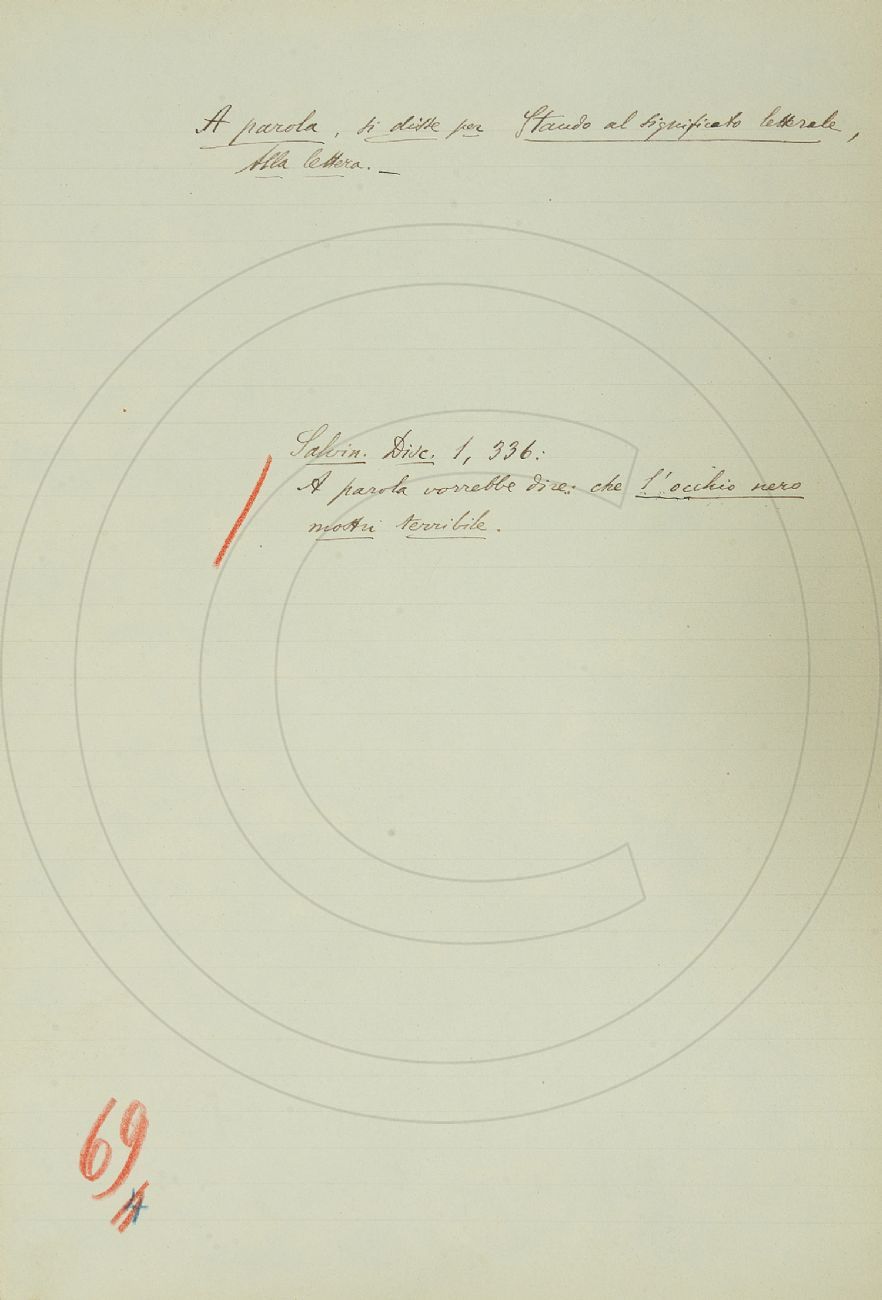 A parola, si disse per Stando al significato letterale,
Alla lettera. _
Salvin. Disc. 1, 336:
A parola vorrebbe dire: che l'occhio nero
mostri terribile.
69